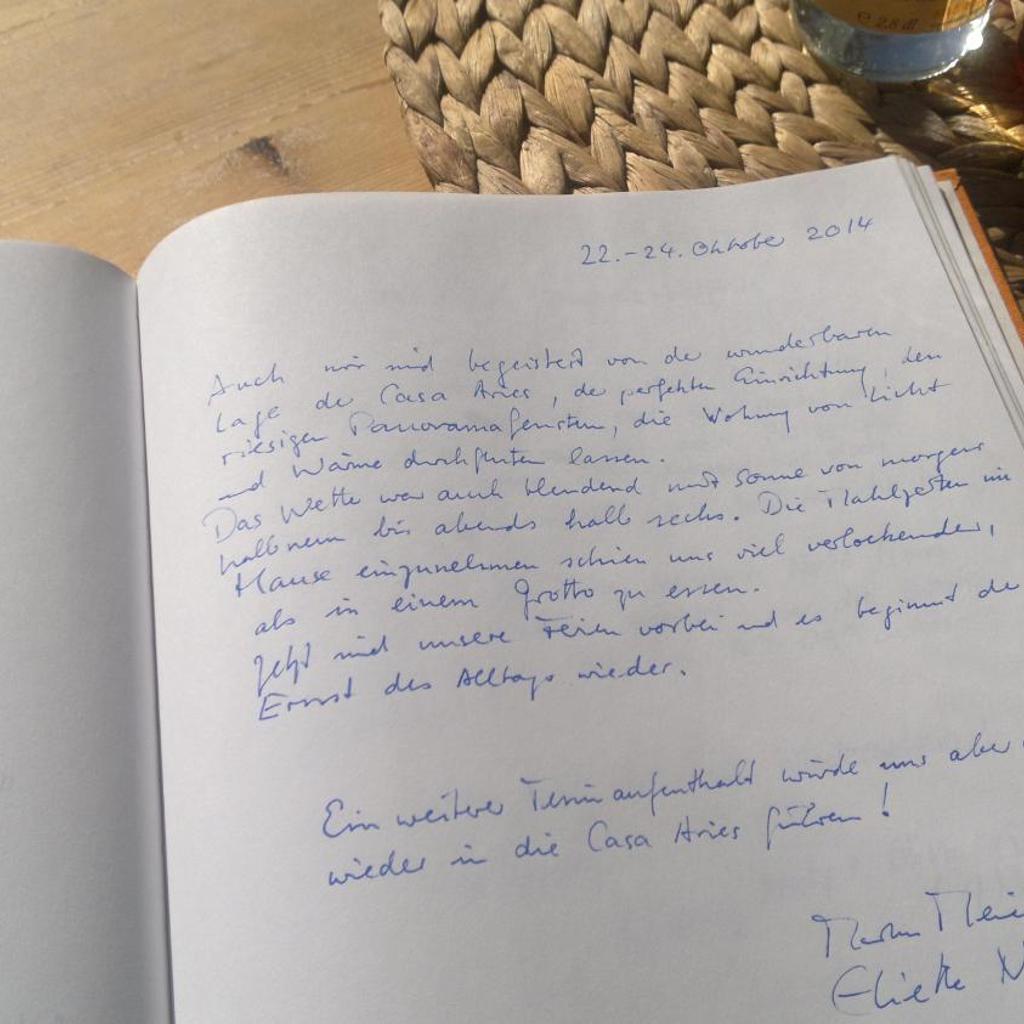 ℮ 2,8 dl
22.-24. Oktober 2014
Auch wir sind begeistert von der wunderbaren
Lage der Casa Aries, der perfekten Einrichtung, den
riesigen Panoramafenstern, die Wohnung von Licht
und Wärme durchfluten lassen.
Das Wetter war auch blendend mit Sonne von morgens
halb neun bis abends halb sechs. Die Mahlzeiten im
Hause einzunehmen schien uns viel verlockender,
als in einem Grotto zu essen.
Jetzt sind unsere Ferien vorbei und es beginnt der
Ernst des Alltags wieder.
Ein weiterer Tessinaufenthalt würde uns aber
wieder in die Casa Aries führen!
Eliette